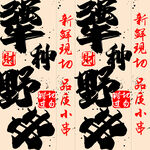 犟种野串
新鲜现切 品质小串
犟种野串
新鲜现切 品质小串